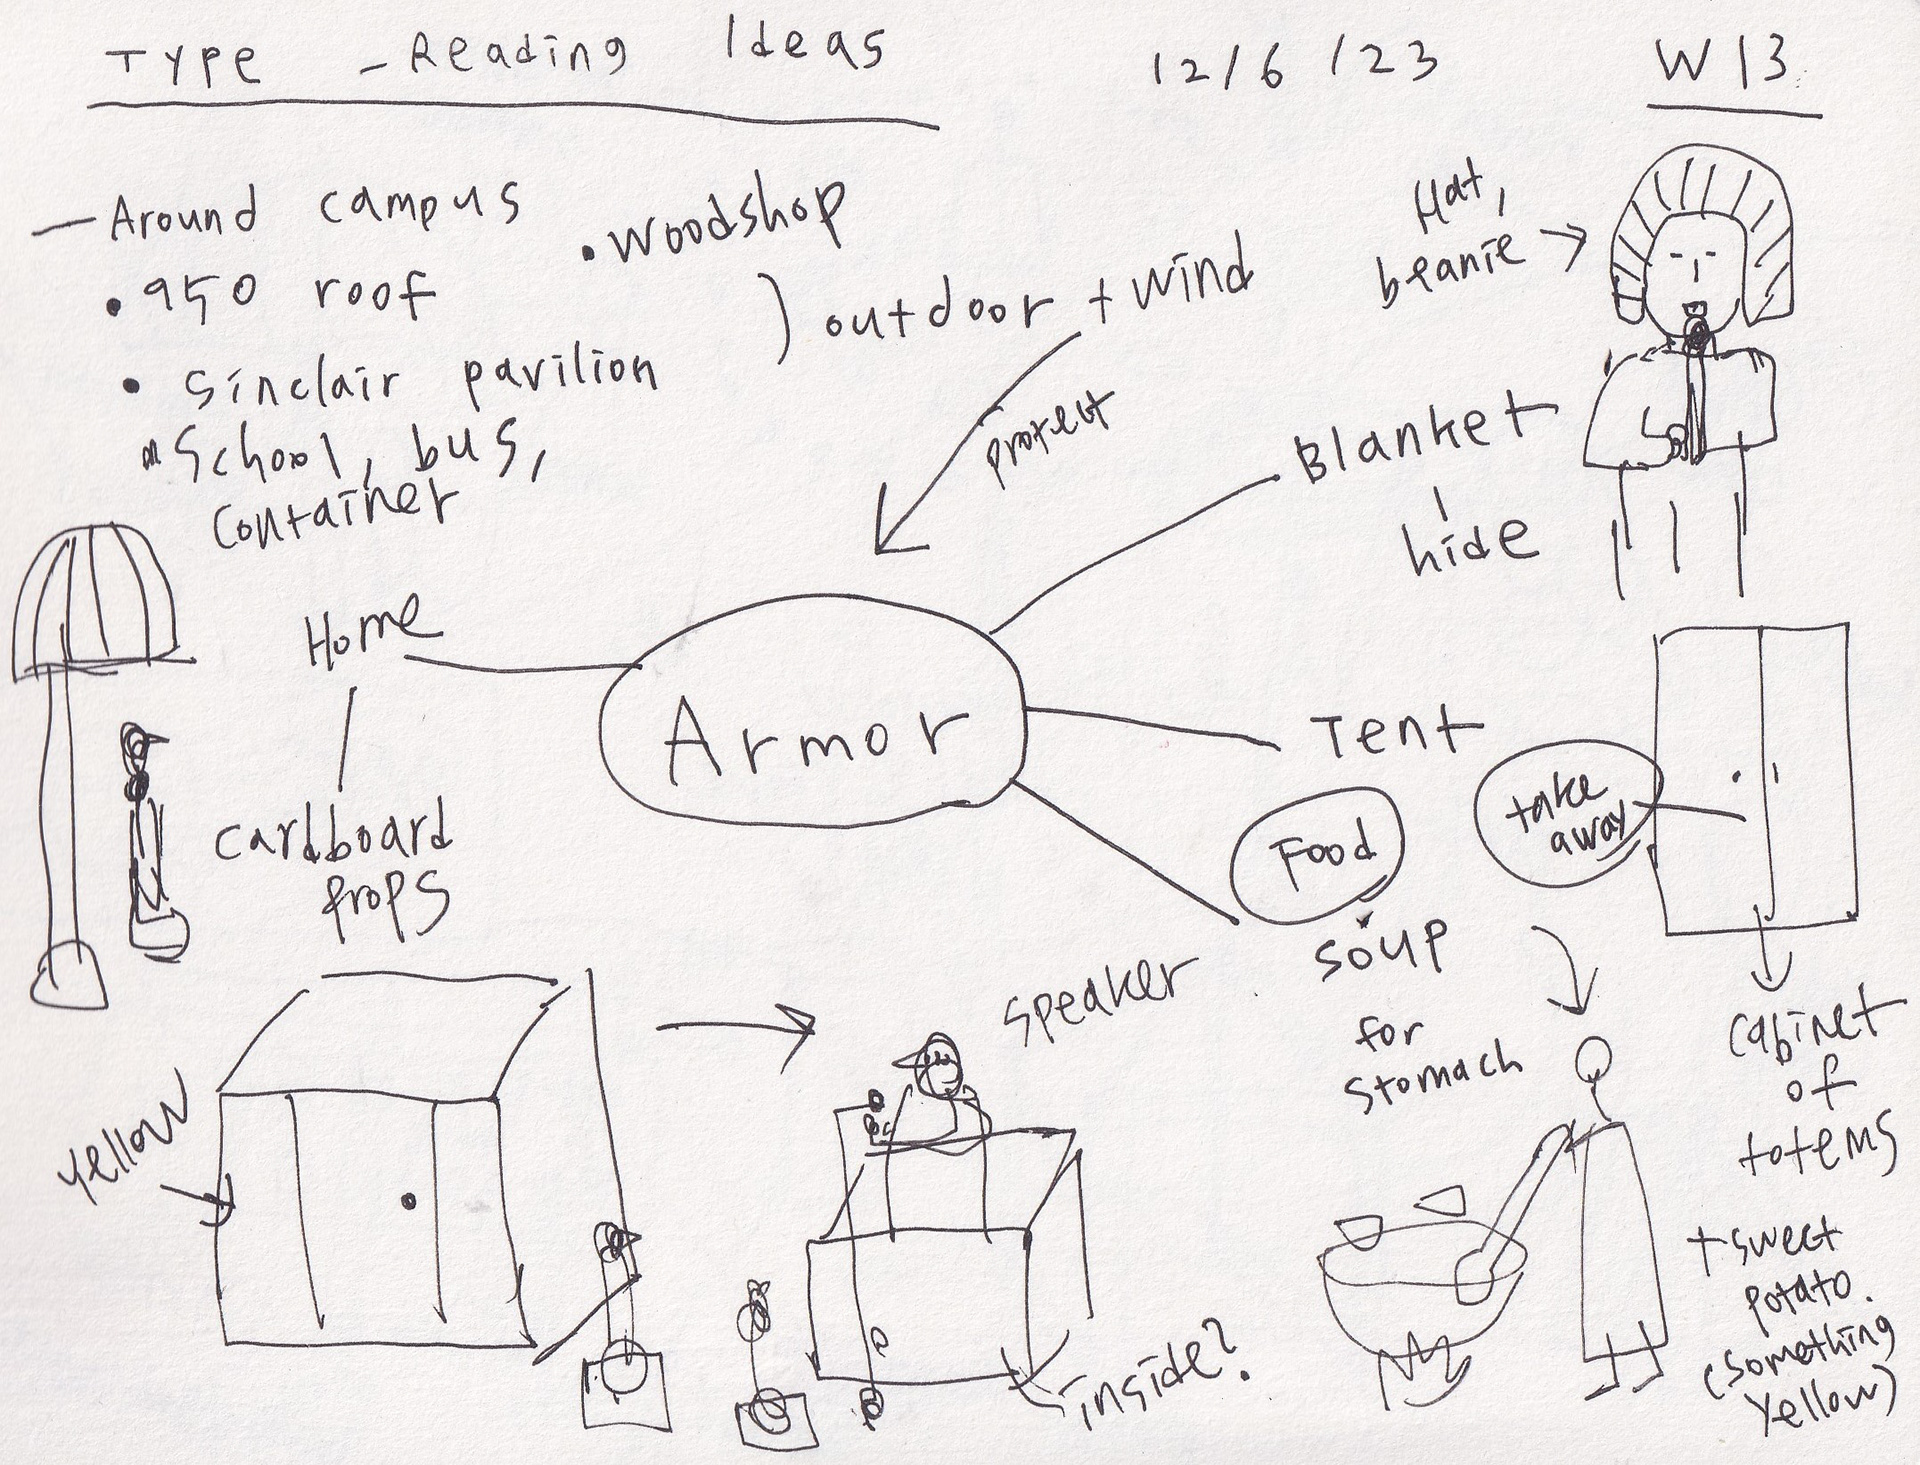 Type - Reading Ideas
12/6/23
W13
- Around campus
• woodshop
• 950 roof
• Sinclair pavilion
) outdoor + wind
School, bus,
container
protect
Hat,
beanie →
Blanket
hide
Home
Armor
Tent
cardboard
props
Food
take
away
soup
for
stomach
cabinet
of
totems
+ sweet
potato.
(something
yellow)
speaker
yellow
inside?